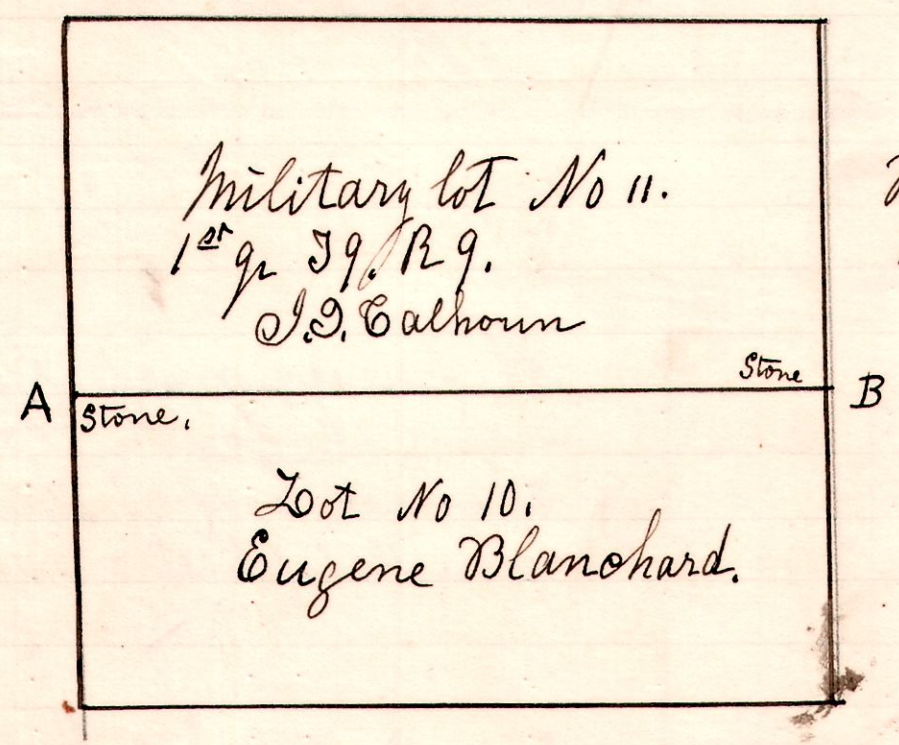 Military lot No 11.
1st qr T 9. R 9.
J. D. Calhoun
Stone
A
B
Stone.
Lot No 10.
Eugene Blanchard.